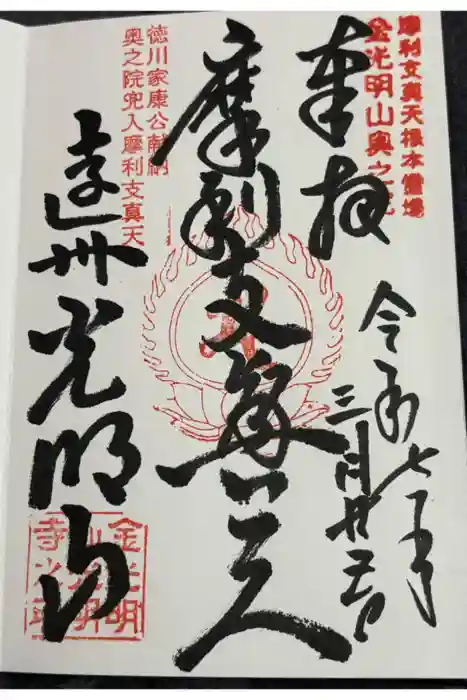 摩利支真天根本
金光明山奥之院
奉拝
令和七年
三月廿五日
摩利支真天
徳川家康公献納
奥之院兜入摩利支真天
遠州光明山
金光明
山光明